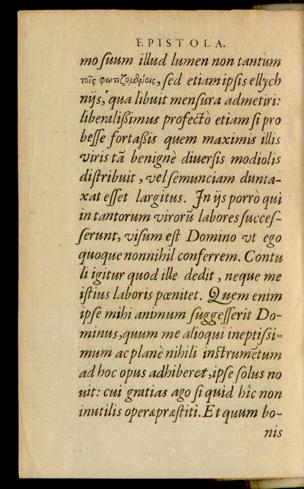 EPISTOLA.
mo suum illud lumen non tantùm
τοῖς φωτιζομένοις, sed etiam ipsis ellych
nijs, qua libuit mensura admetiri:
liberalißimus profectò etiam si pro
besse fortaßis quem maximis illis
viris tā benignè diuersis modiolis
distribuit, vel semunciam dunta-
xat esset largitus. In ijs porrò qui
in tantorum virorū labores succes-
serunt, visum est Domino vt ego
quoque nonnihil conferrem. Contu
li igitur quod ille dedit, neque me
istius laboris pœnitet. Quem enim
ipse mihi animum suggesserit Do-
minus, quum me alioqui ineptissi-
mum ac planè nihili instrumētum
ad hoc opus adhiberet, ipse solus no
uit: cui gratias ago si quid hîc non
inutilis operæ præstiti. Et quum bo-
nis